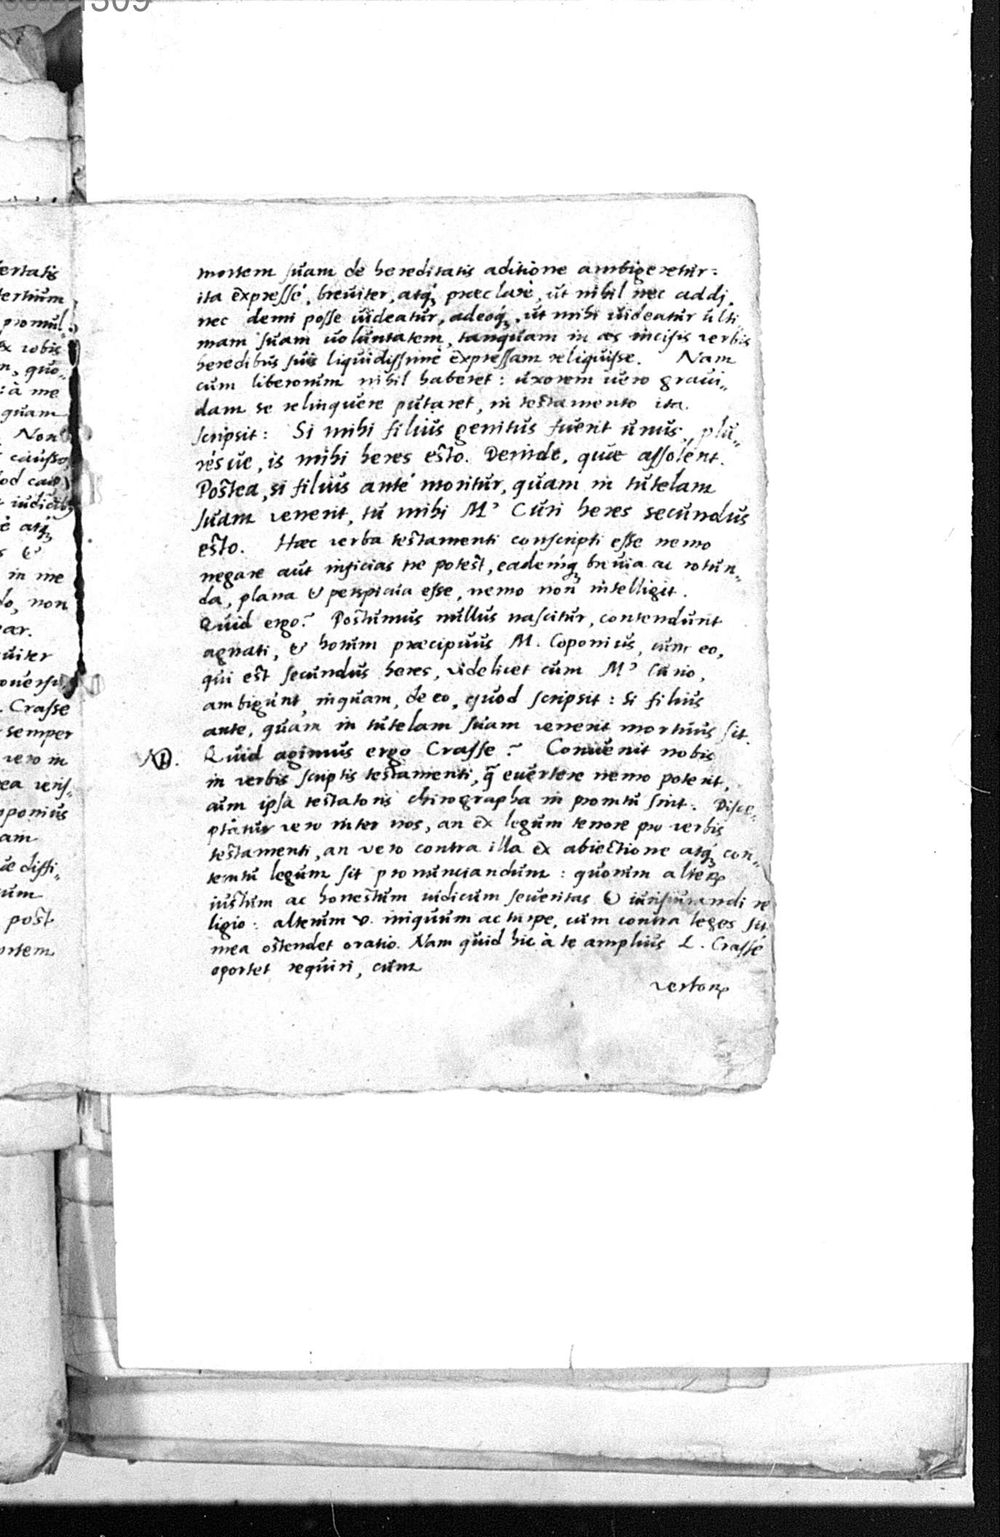 mortem suam de hereditatis aditione ambigeretur:
ita expressé, breuiter, atq́; præclarè, ut nihil nec addi,
nec demi posse uideatur, adeoq́;, ut mihi uideatur ulti
mam suam uoluntatem, tanquam in æs incisis verbis
heredibus suis liquidissimè expressam reliquisse. Nam
cum liberorum nihil haberet: uxorem uero graui-
dam se relinquere putaret, in testamento ita
scripsit: Si mihi filius genitus fuerit unus, plu-
résue, is mihi heres esto. Deinde, quæ assolent.
Postea, si filius anté moritur, quam in tutelam
suam venerit, tu mihi M' Curi heres secundus
esto. Hæc verba testamenti conscripti esse nemo
negare aut inficias ire potest, eademq́; breuia ac rotun-
da, plana & perspicua esse, nemo non intelligit.
Quid ergo? Posthumus nullus nascitur, contendunt
agnati, & horum præcipuus M. Coponius, cum eo,
qui est secundus heres, videlicet cum M' Curio,
ambigunt inquam, de eo, quod scripsit: Si filius
ante, quàm in tutelam suam venerit mortuus sit.
Quid agimus ergo Crasse? Conuenit nobis
in verbis scriptis testamenti, q̃ euertere nemo poterit,
cum ipsa testatoris chirographa in promtu sint. Disce-
ptatur vero inter nos, an ex legum tenore pro verbis
testamenti, an vero contra illa ex abiectione atq́; con-
temtu legum sit pronunciandum: quorum alterꝝ
iustum ac honestum iudicum seueritas & iurisiurandi re
ligio: alterum v. iniquum ac turpe, cum contra leges sit
mea ostendet oratio. Nam quid hic à te amplius L. Crasse
oportet requiri, cum
ertatis
tertium,
promul-
ex vobis
à me
quam
Non
causso
iudicib
atq́;
&
in me
do, non
uiter
Crasse
semper
vero in
ponius
am
diffi-
post
ortem